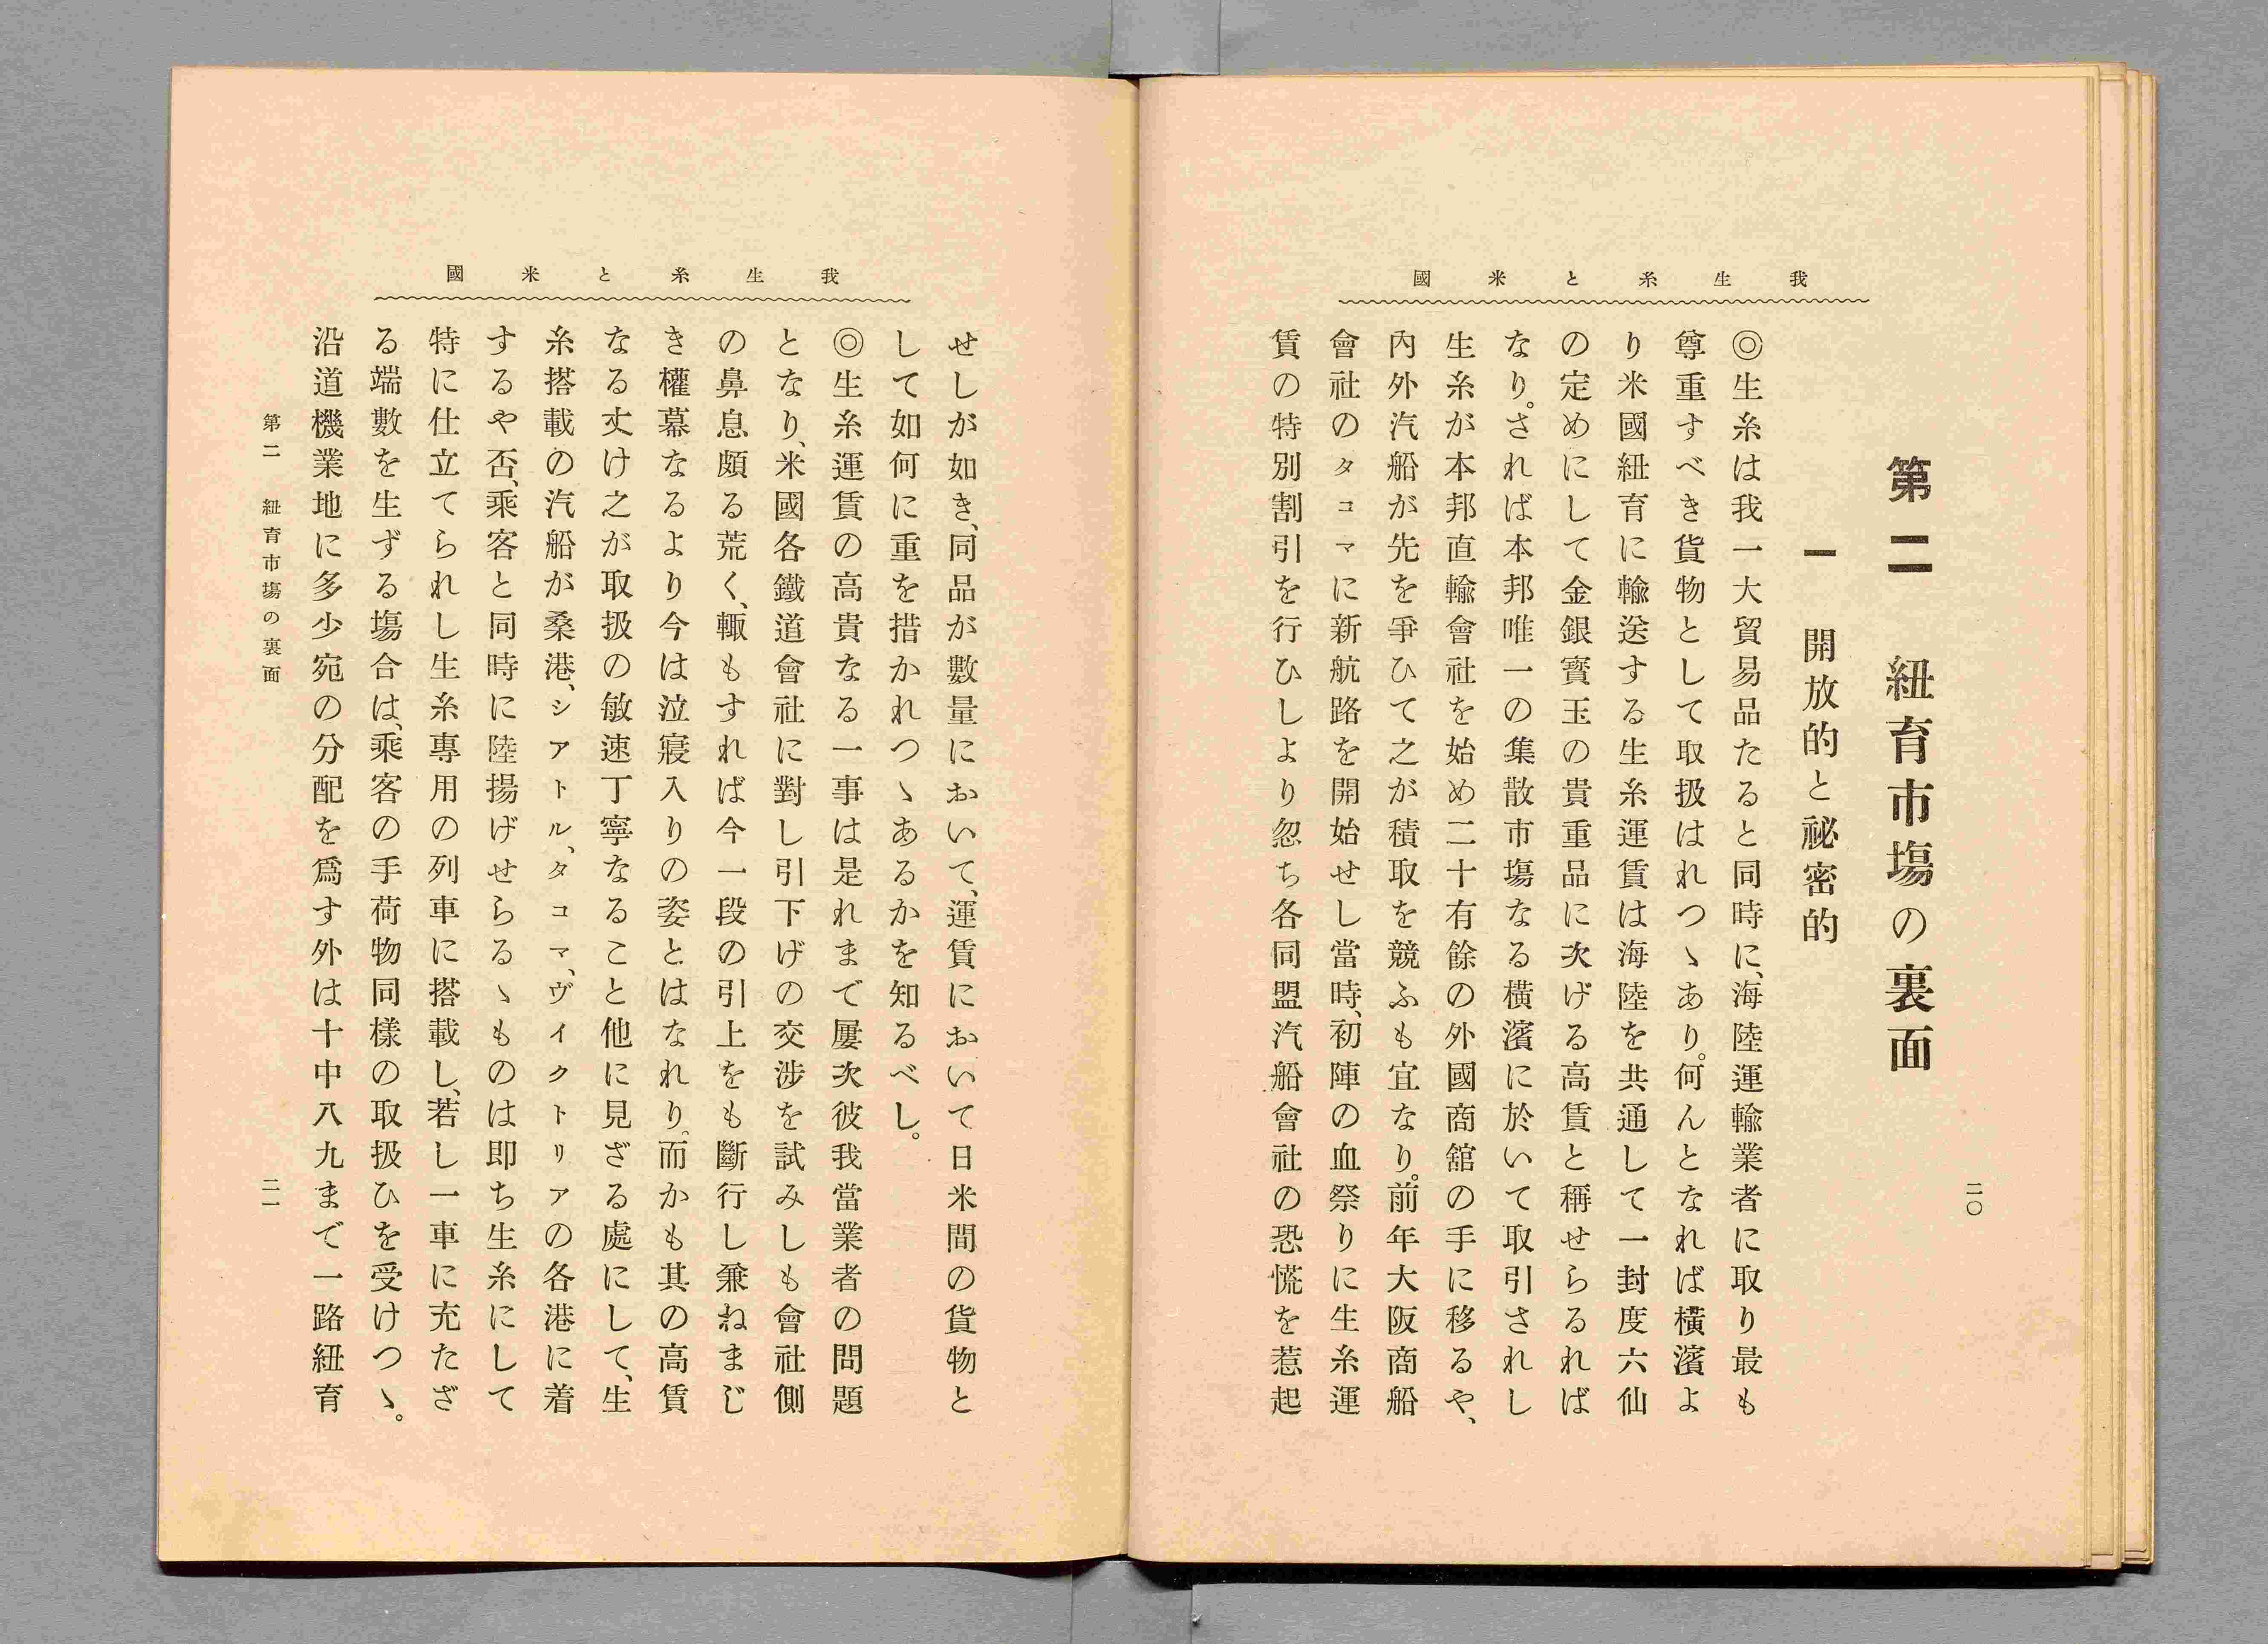 我生糸と米國
二〇
第二　紐育市塲の裏面
一　開放的と祕密的
◎生糸は我一大貿易品たると同時に、海陸運輸業者に取り最も
尊重すべき貨物として取扱はれつゝあり。何んとなれば橫濱よ
り米國紐育に輸送する生糸運賃は海陸を共通して一封度六仙
の定めにして金銀寳玉の貴重品に次げる高賃と稱せらるれば
なり。されば本邦唯一の集散市塲なる橫濱に於いて取引されし
生糸が本邦直輸會社を始め二十有餘の外國商舘の手に移るや、
內外汽船が先を爭ひて之が積取を競ふも宜なり。前年大阪商船
會社のタコマに新航路を開始せし當時、初陣の血祭りに生糸運
賃の特別割引を行ひしより忽ち各同盟汽船會社の恐慌を惹起
我生糸と米國
せしが如き、同品が數量において、運賃において日米間の貨物と
して如何に重を措かれつゝあるかを知るべし。
◎生糸運賃の高貴なる一事は是れまで屢次彼我當業者の問題
となり、米國各鐵道會社に對し引下げの交涉を試みしも會社側
の鼻息頗る荒く、輙もすれば今一段の引上をも斷行し兼ねまじ
き權幕なるより今は泣寢入りの姿とはなれり。而かも其の高賃
なる丈け之が取扱の敏速丁寧なること他に見ざる處にして、生
糸搭載の汽船が桑港、シアトル、タコマ、ヴイクトリアの各港に着
するや否、乘客と同時に陸揚げせらるゝものは卽ち生糸にして
特に仕立てられし生糸專用の列車に搭載し、若し一車に充たざ
る端數を生ずる塲合は、乘客の手荷物同樣の取扱ひを受けつゝ。
沿道機業地に多少宛の分配を爲す外は十中八九まで一路紐育
第二　紐育市塲の裏面
二一